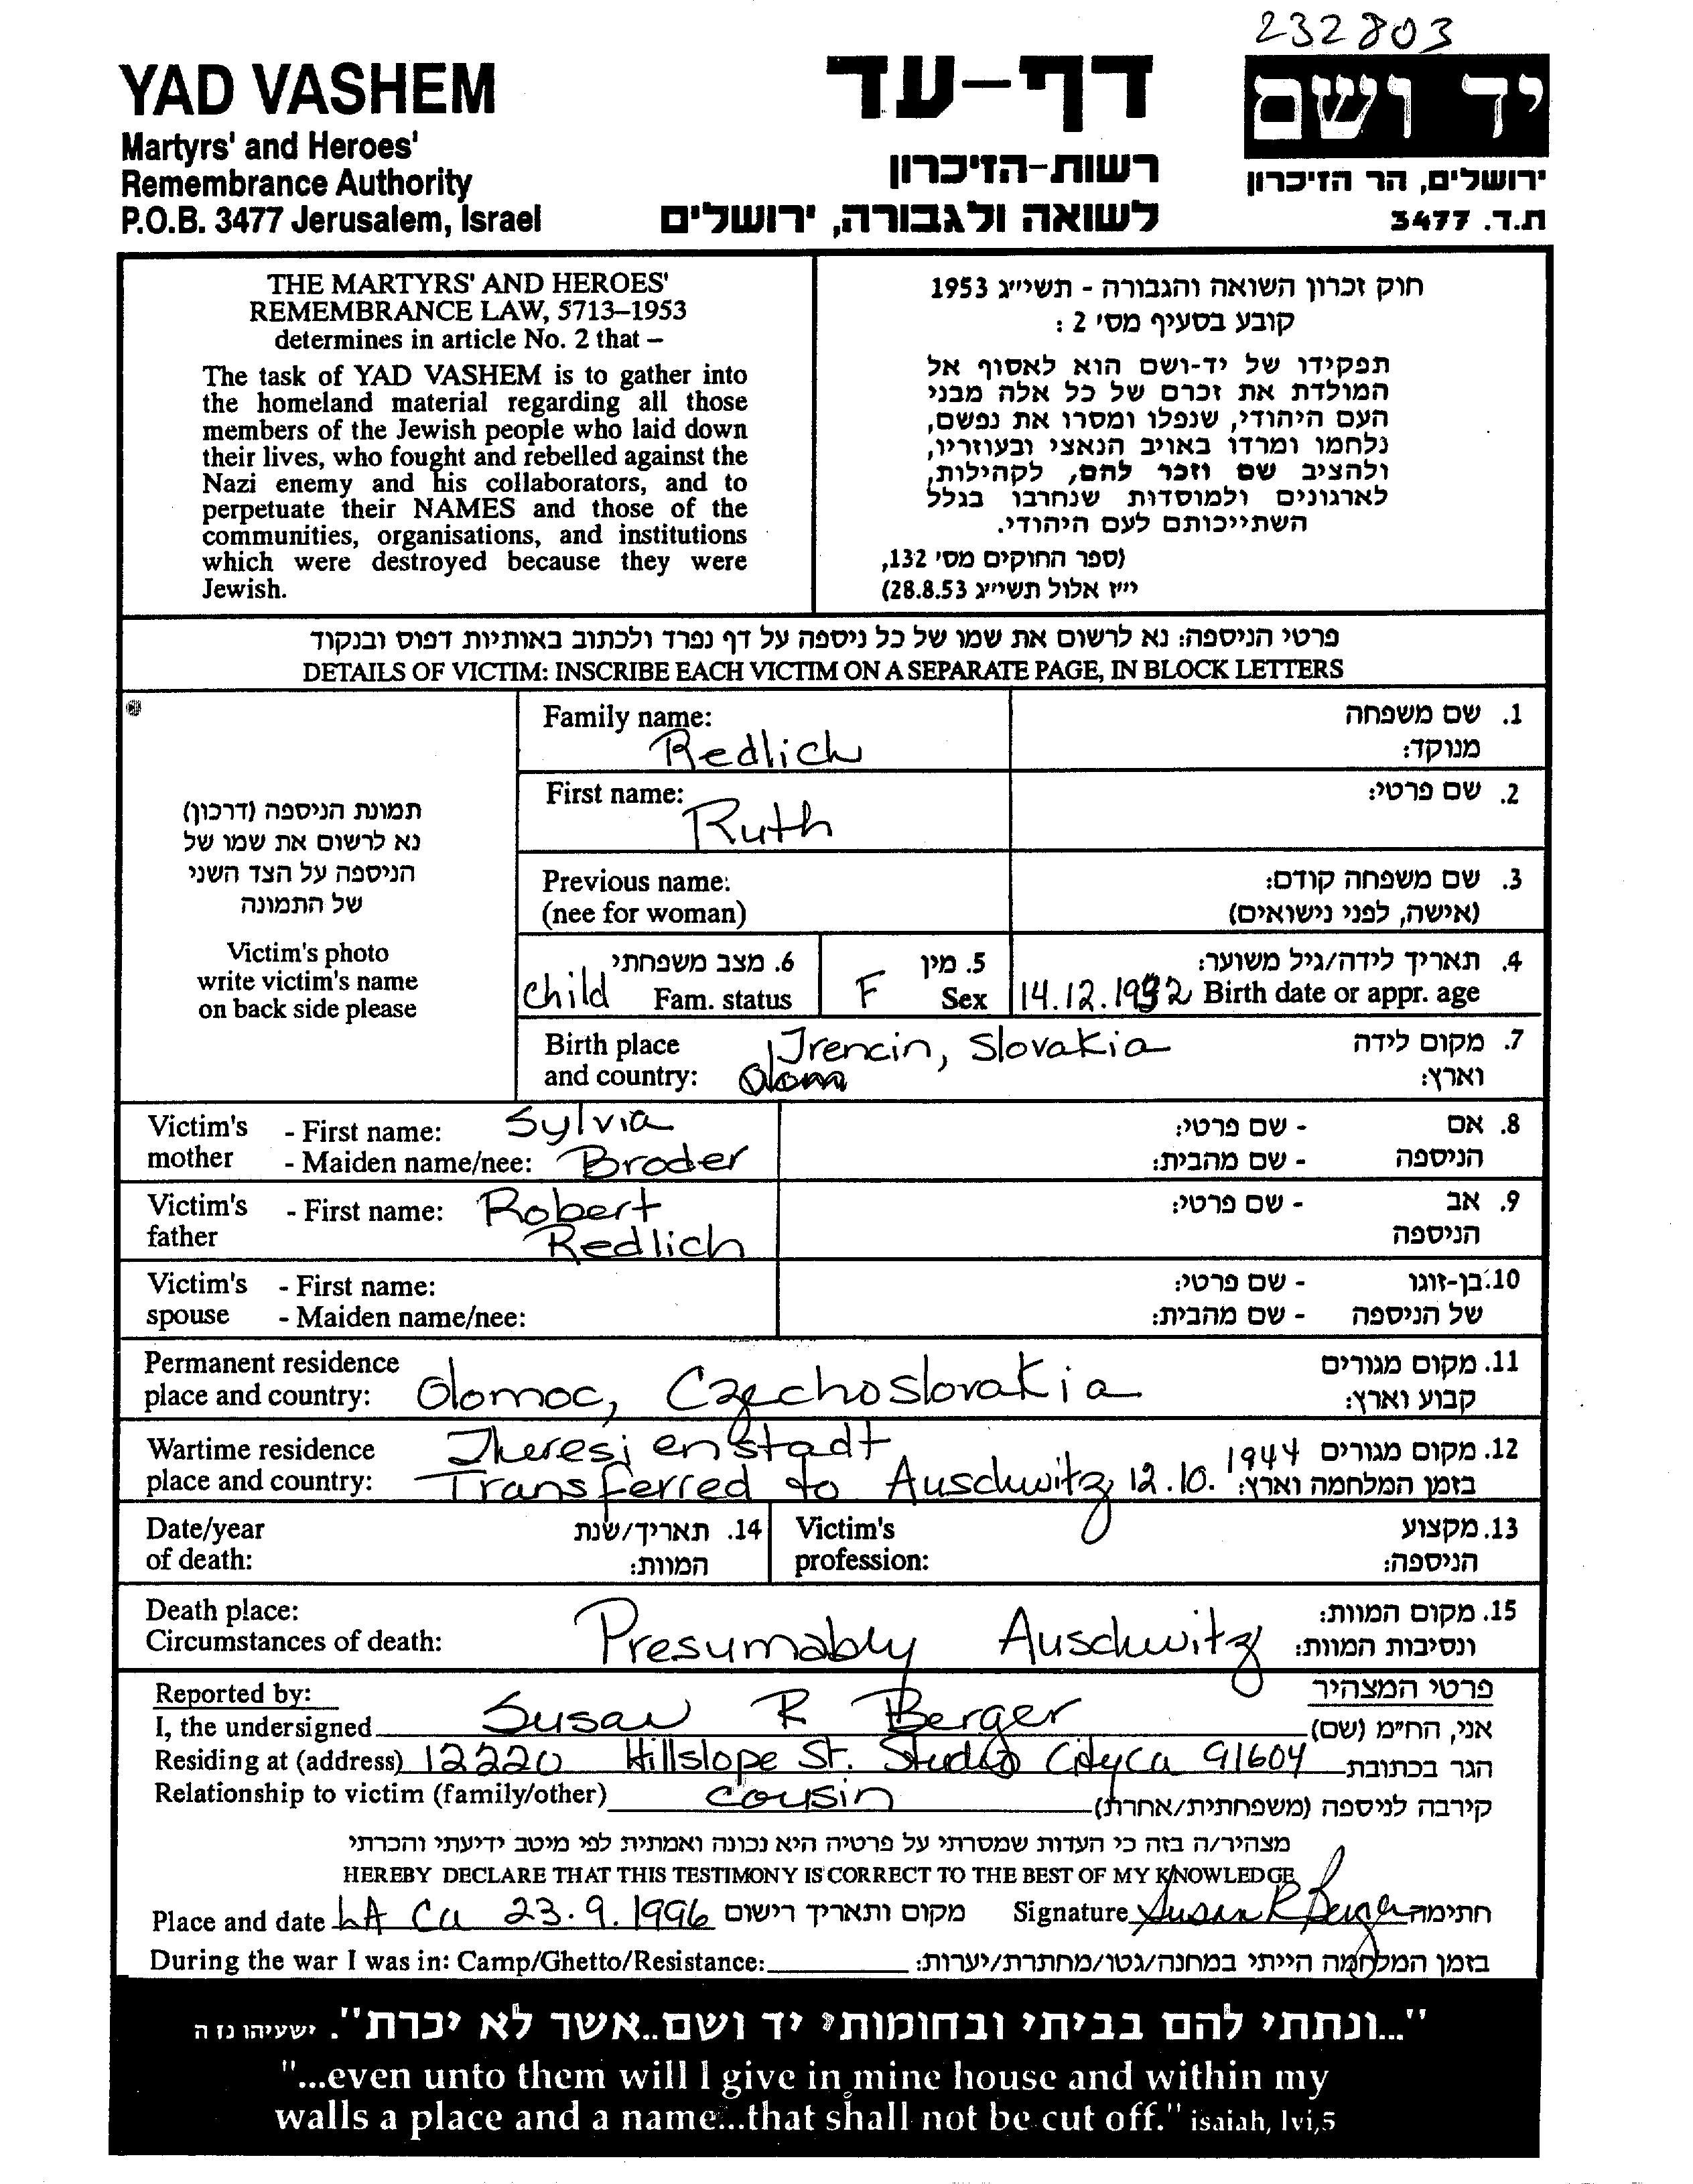 232803
YAD VASHEM
Martyrs' and Heroes'
Remembrance Authority
P.O.B. 3477 Jerusalem, Israel
דף-עד
רשות-הזיכרון
לשואה ולגבורה, ירושלים
יד ושם
ירושלים, הר הזיכרון
ת.ד. 3477
THE MARTYRS' AND HEROES'
REMEMBRANCE LAW, 5713–1953
determines in article No. 2 that –
The task of YAD VASHEM is to gather into
the homeland material regarding all those
members of the Jewish people who laid down
their lives, who fought and rebelled against the
Nazi enemy and his collaborators, and to
perpetuate their NAMES and those of the
communities, organisations, and institutions
which were destroyed because they were
Jewish.
חוק זכרון השואה והגבורה - תשי״ג 1953
קובע בסעיף מס׳ 2 :
תפקידו של יד-ושם הוא לאסוף אל
המולדת את זכרם של כל אלה מבני
העם היהודי, שנפלו ומסרו את נפשם,
נלחמו ומרדו באויב הנאצי ובעוזריו,
ולהציב שם וזכר להם, לקהילות,
לארגונים ולמוסדות שנחרבו בגלל
השתייכותם לעם היהודי.
(ספר החוקים מס׳ 132,
י״ז אלול תשי״ג 28.8.53)
פרטי הניספה: נא לרשום את שמו של כל ניספה על דף נפרד ולכתוב באותיות דפוס ובנקוד
DETAILS OF VICTIM: INSCRIBE EACH VICTIM ON A SEPARATE PAGE, IN BLOCK LETTERS
תמונת הניספה (דרכון)
נא לרשום את שמו של
הניספה על הצד השני
של התמונה
Victim's photo
write victim's name
on back side please
Family name: 1. שם משפחה
Redlich מנוקד:
First name: 2. שם פרטי:
Ruth
Previous name: 3. שם משפחה קודם:
(nee for woman) (אישה, לפני נישואים)
6. מצב משפחתי 5. מין 4. תאריך לידה/גיל משוער:
Child Fam. status F Sex 14.12.1932 Birth date or appr. age
Birth place Trencin, Slovakia 7. מקום לידה
and country: וארץ:
Victim's - First name: Sylvia - שם פרטי: 8. אם
mother - Maiden name/nee: Broder - שם מהבית: הניספה
Victim's - First name: Robert - שם פרטי: 9. אב
father Redlich הניספה
Victim's - First name: - שם פרטי: 10. בן-זוגו
spouse - Maiden name/nee: - שם מהבית: של הניספה
Permanent residence 11. מקום מגורים
place and country: Olomoc, Czechoslovakia קבוע וארץ:
Wartime residence Theresienstadt 1944 12. מקום מגורים
place and country: Transferred to Auschwitz 12.10. בזמן המלחמה וארץ:
Date/year 14. תאריך/שנת Victim's 13. מקצוע
of death: המוות: profession: הניספה:
Death place: 15. מקום המוות:
Circumstances of death: Presumably Auschwitz ונסיבות המוות:
Reported by: פרטי המצהיר
I, the undersigned Susan R Berger אני, הח״מ (שם)
Residing at (address) 12220 Hillslope St. Studio City Ca 91604 הגר בכתובת
Relationship to victim (family/other) cousin קירבה לניספה (משפחתית/אחרת)
מצהיר/ה בזה כי העדות שמסרתי על פרטיה היא נכונה ואמתית לפי מיטב ידיעתי והכרתי
HEREBY DECLARE THAT THIS TESTIMONY IS CORRECT TO THE BEST OF MY KNOWLEDGE
Place and date LA Ca 23.9.1996 מקום ותאריך רישום Signature Susan R Berger חתימה
During the war I was in: Camp/Ghetto/Resistance: בזמן המלחמה הייתי במחנה/גטו/מחתרת/יערות:
"...ונתתי להם בביתי ובחומותי יד ושם..אשר לא יכרת". ישעיהו נז ה
"...even unto them will I give in mine house and within my
walls a place and a name...that shall not be cut off." isaiah, lvi,5